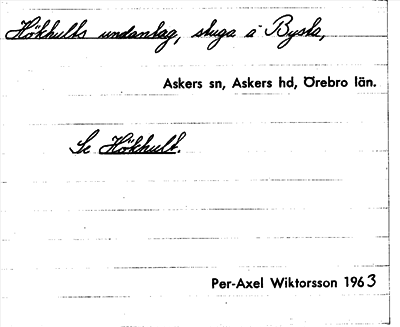 Hökhults undantag, stuga å Bysta,
Askers sn, Askers hd, Örebro län.
Se Hökhult.
Per-Axel Wiktorsson 1963